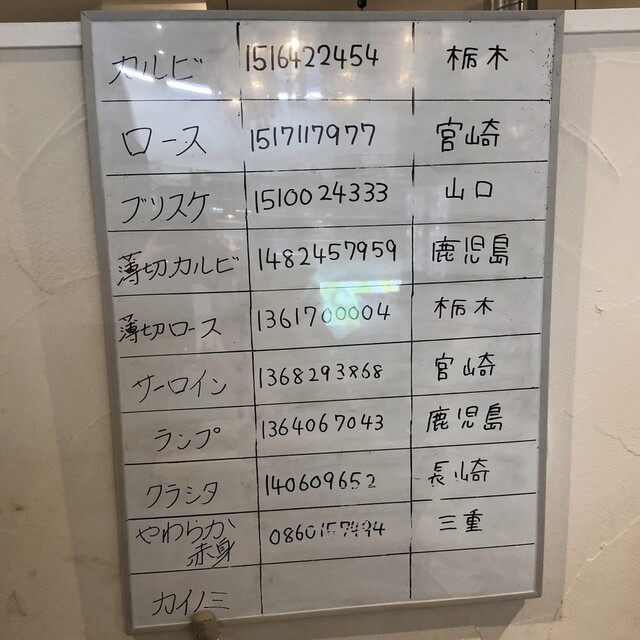 カルビ 1516422454 栃木
ロース 1517117977 宮崎
ブリスケ 1510024333 山口
薄切カルビ 1482457959 鹿児島
薄切ロース 1361700004 栃木
サーロイン 1368293868 宮崎
ランプ 1364067043 鹿児島
クラシタ 140609652 長崎
やわらか 三重
赤身
カイノミ